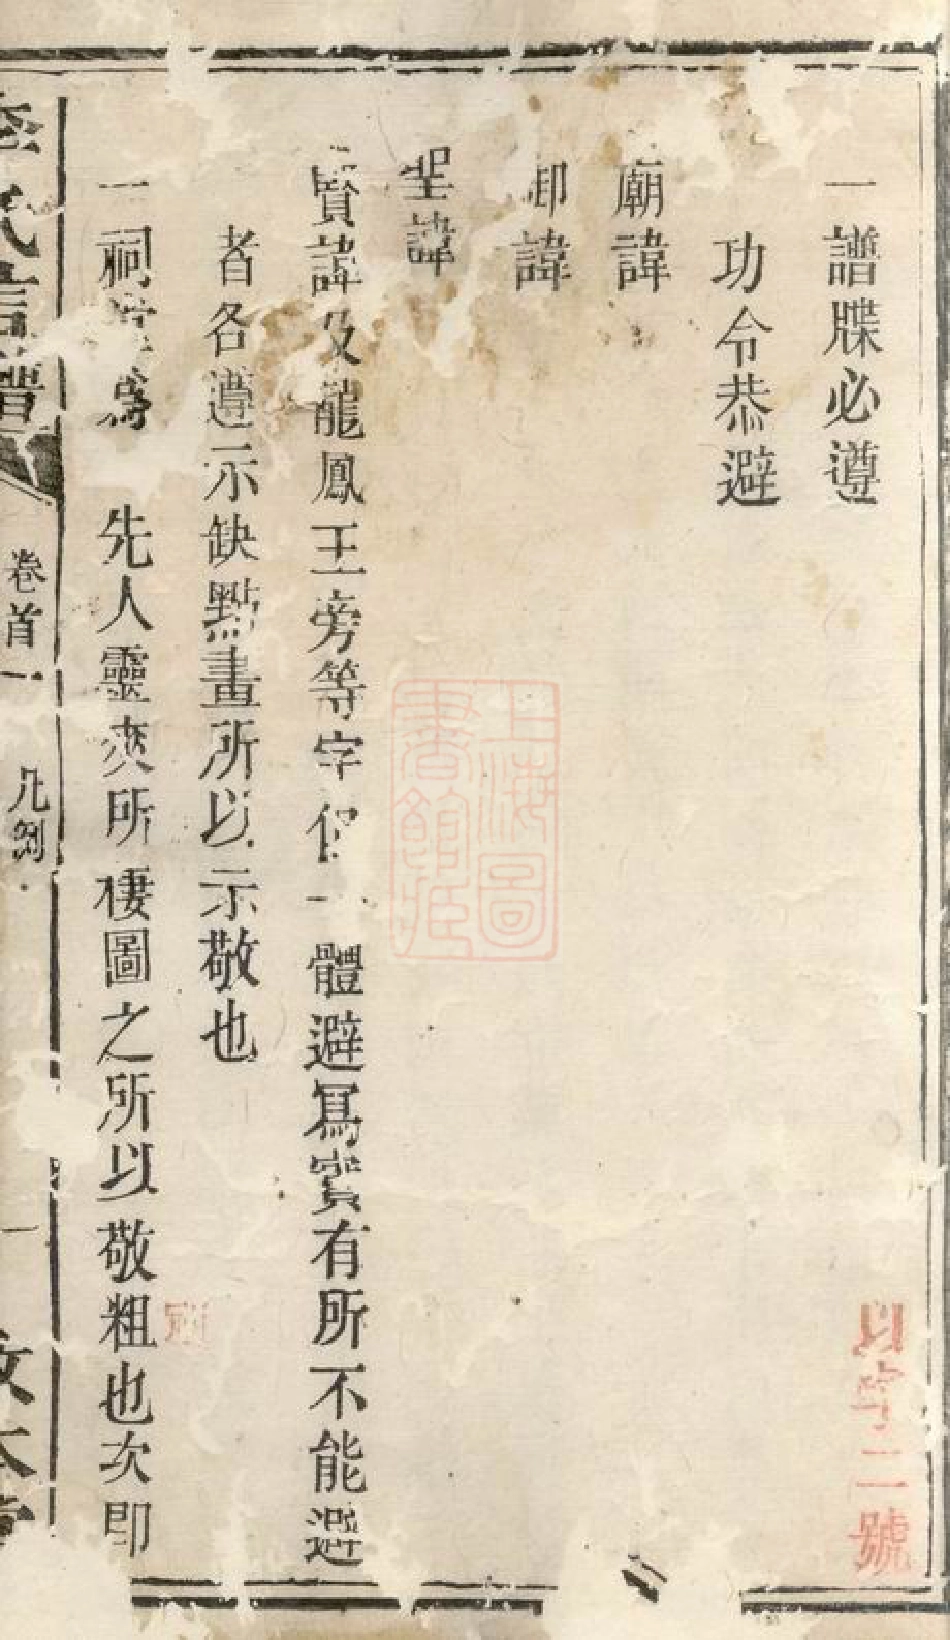 一譜牒必遵
功令恭避
廟諱
御諱
聖諱
賢諱及龍鳳王旁等字俱一體避寫實有所不能避
者各遵示缺點畫所以示敬也
一祠堂爲 先人靈爽所棲圖之所以敬祖也次即
氏言譜 卷首一 凡例 一 敦本堂
上海圖書館藏
以字二號